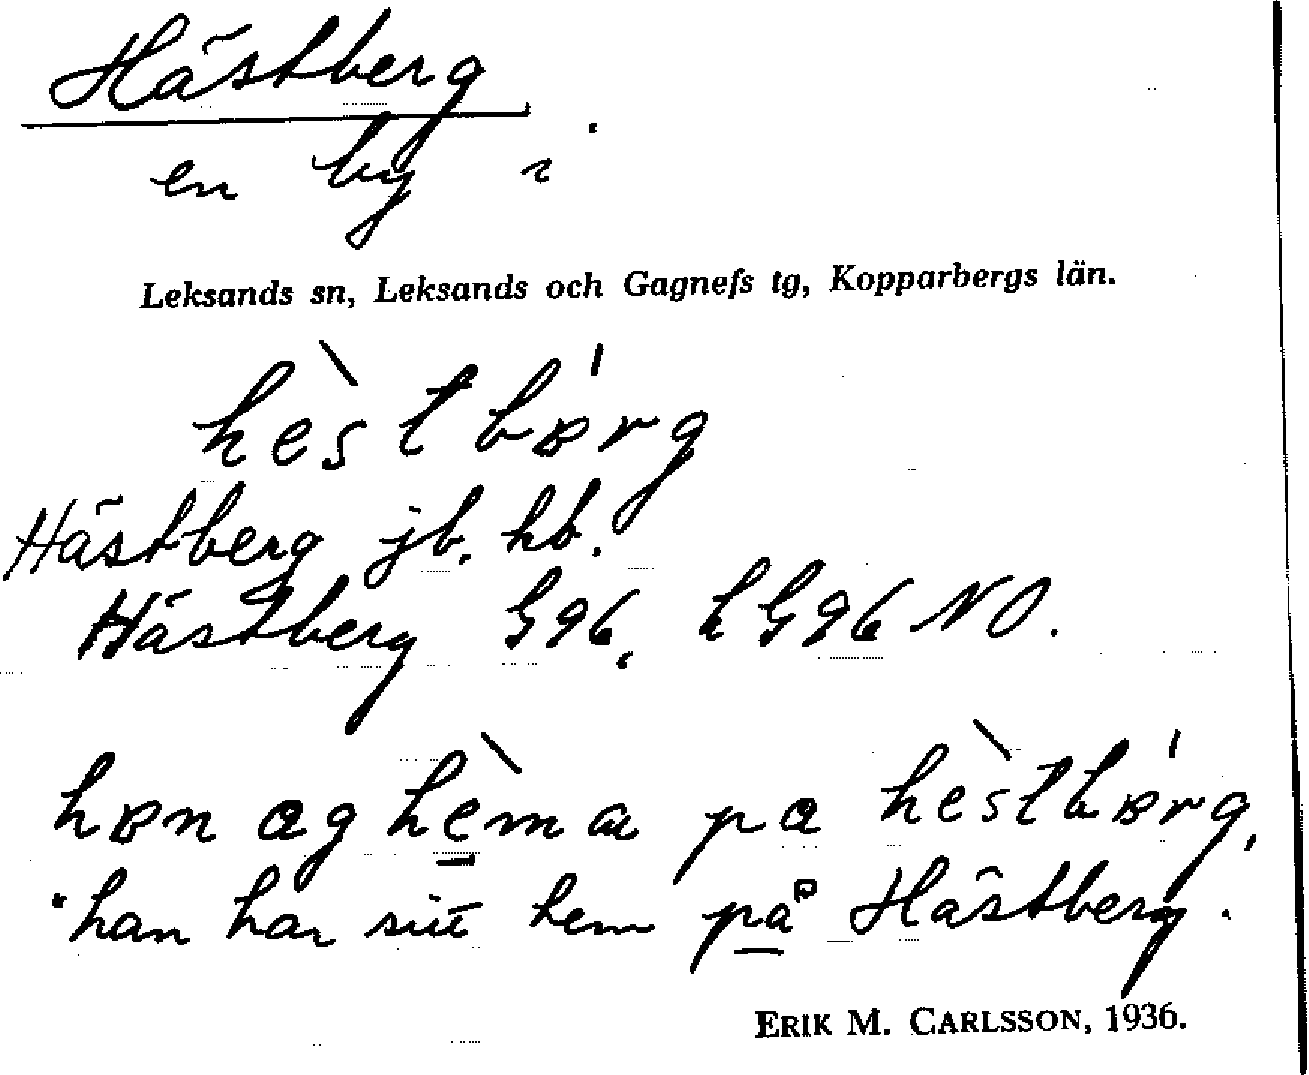 Hästberg
en by i
Leksands sn, Leksands och Gagnefs tg, Kopparbergs län.
hè̀stbɐrg
Hästberg jb. hb.
Hästberg G96, LG96 NO.
hɐn ag hèma pa hèstbɐrg,
"han har sitt hem på Hästberg.
ERIK M. CARLSSON, 1936.